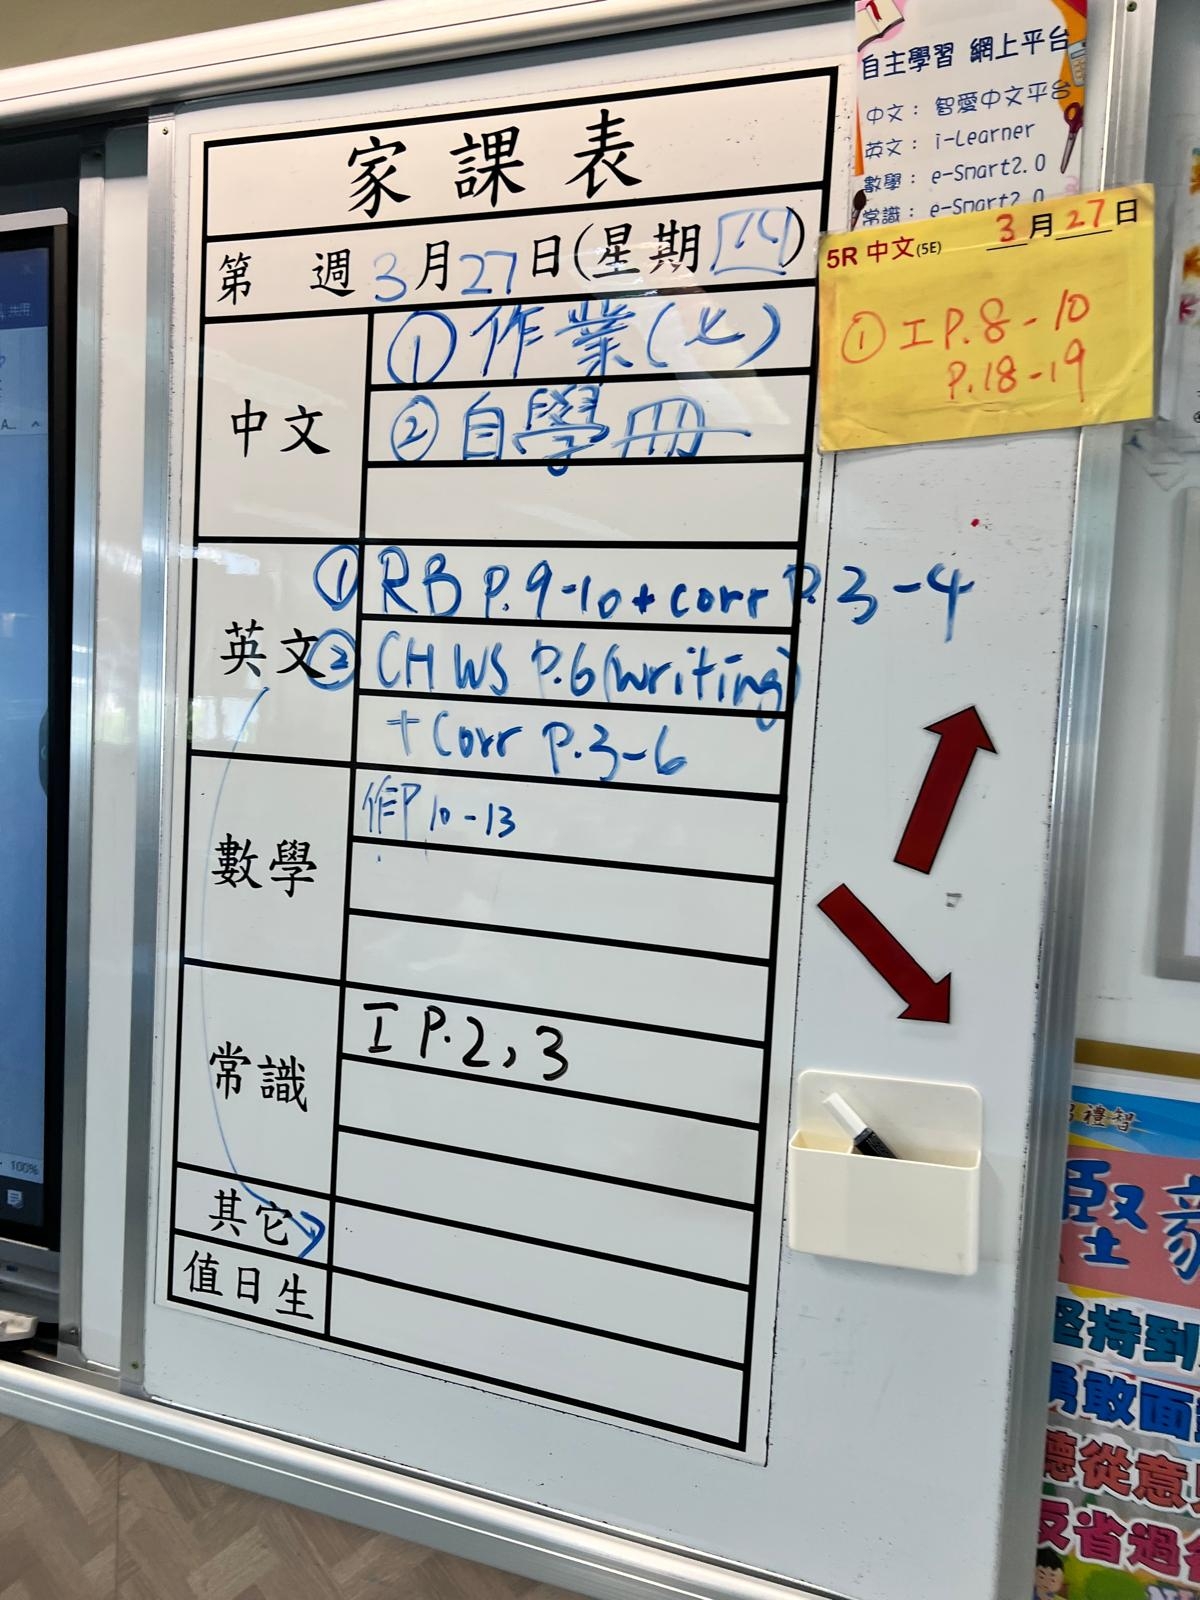 家課表
第 週 3月27日(星期四)
中文
①作業(七)
②自學冊
英文
① RB P.9-10 + corr P.3-4
② CH WS P.6 (writing)
+ Corr P.3-6
數學
作P10-13
常識
I P.2,3
其它
值日生
自主學習 網上平台
中文： 智愛中文平台
英文： i-Learner
數學： e-Smart2.0
常識： e-Smart2.0
5R 中文(5E) 3月27日
① I P.8-10
P.18-19
禮智
堅毅
堅持到
勇敢面
聽從意
反省過
100%